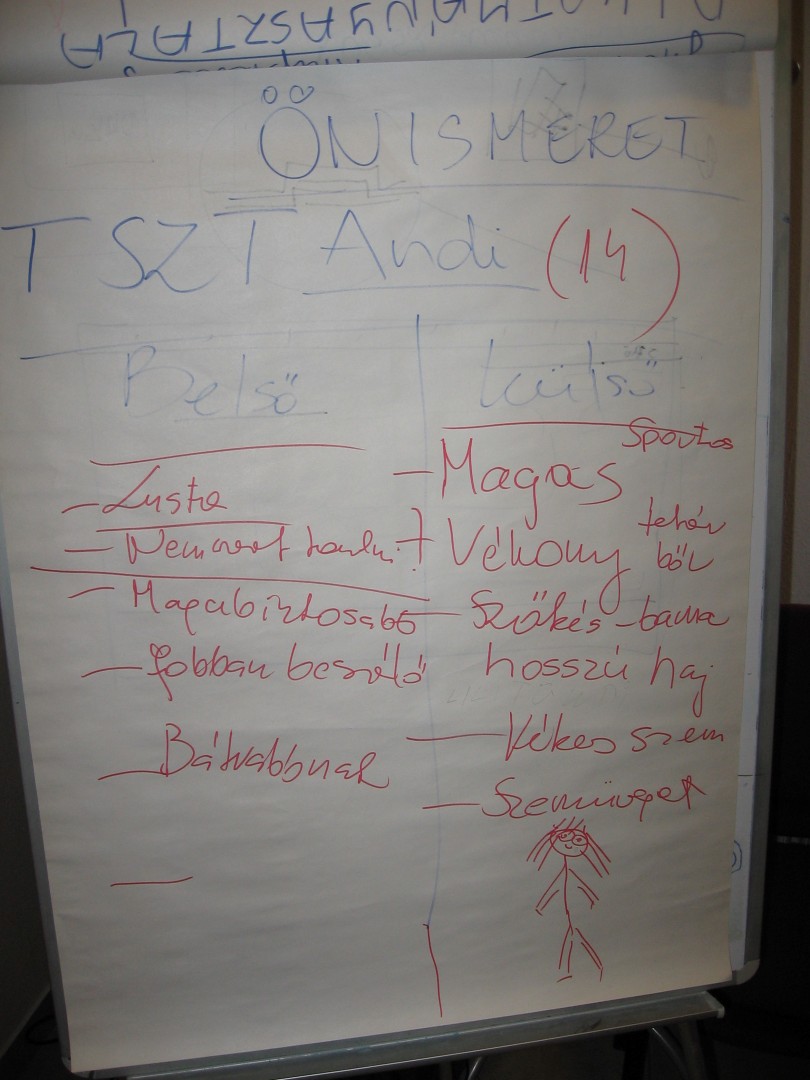 ÖNISMERET
TSZT Andi (14)
Belső
- Lusta
- Nem
- Magabiztosabb
- Jobban beszélő
- Bátrabbnak
-
Külső
Sportos
- Magas
Vékony
fehér
bőr
- Szőkés-barna
hosszú haj
- Kékes szem
- Szemüveget